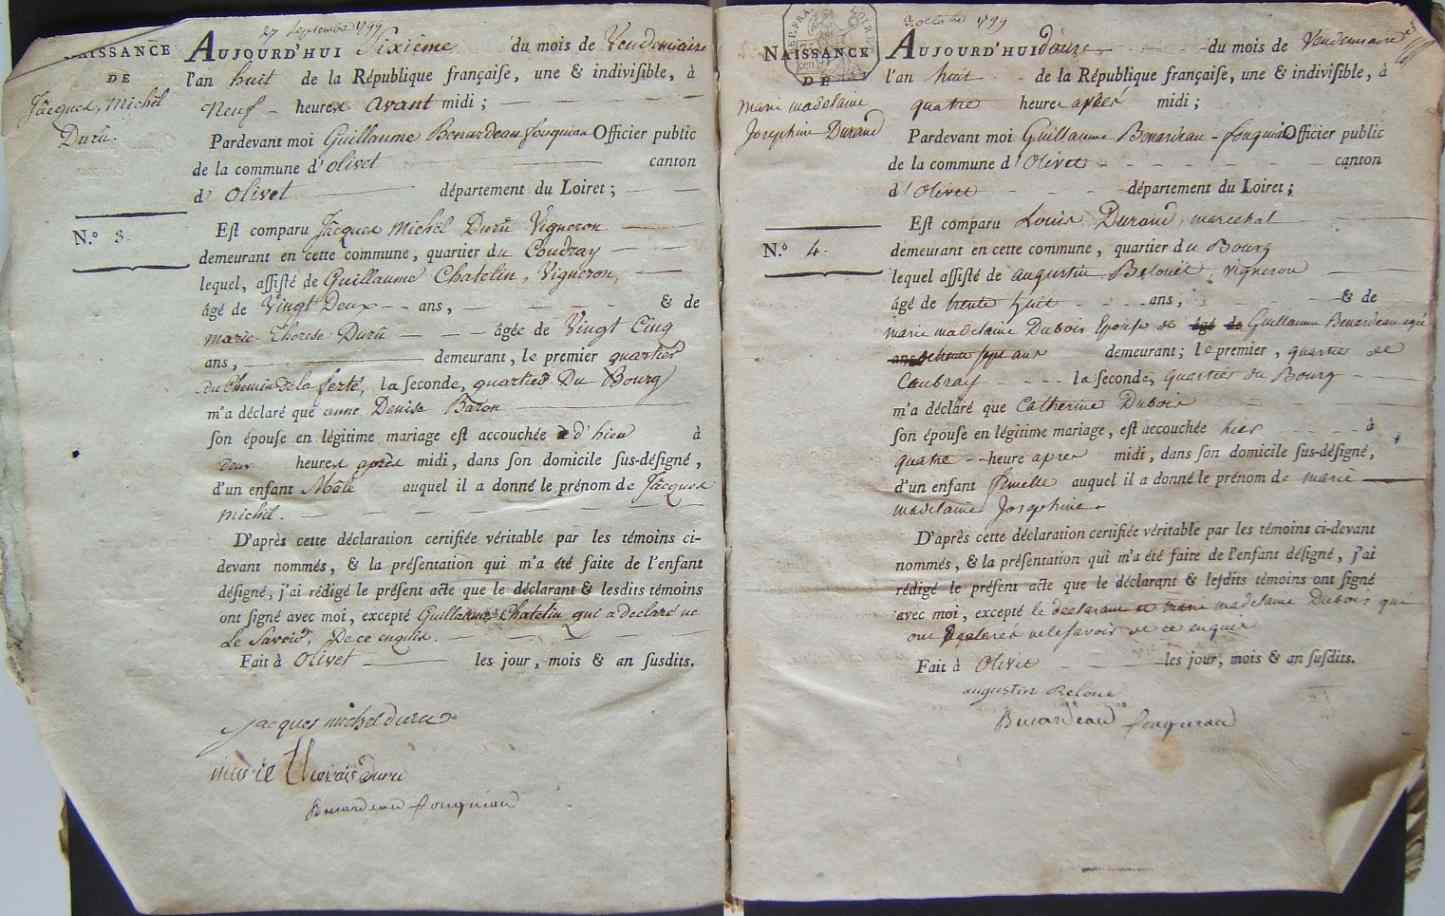 27 septembre 1799
NAISSANCE
DE
Jacques Michel
Duru.
N.º 3.
AUJOURD'HUI Sixième du mois de Vendemiaire
l'an huit de la République françaiſe, une & indiviſible, à
Neuf heures avant midi ;
Pardevant moi Guillaume Benardeau fouqueau Officier public
de la commune d'olivet canton
d' Olivet département du Loiret ;
Eſt comparu Jacques Michel Duru Vigneron
demeurant en cette commune, quartier du Coudray
lequel, aſſiſté de Guillaume Chatelin, Vigneron,
âgé de Vingt Deux ans, & de
marie Therese Duru âgée de Vingt Cinq
ans, demeurant, le premier quartier
du Chemin de la ferté, la ſeconde, quartier Du Bourg
m'a déclaré que anne Denise Baron
ſon épouſe en légitime mariage eſt accouchée d'hier à
deux heures après midi, dans ſon domicile ſus-déſigné,
d'un enfant Mâle auquel il a donné le prénom de Jacques
Michel.
D'après cette déclaration certifiée véritable par les témoins ci-
devant nommés, & la préſentation qui m'a été faite de l'enfant
déſigné, j'ai rédigé le préſent acte que le déclarant & lesdits témoins
ont ſigné avec moi, excepté Guillaume Chatelin qui a declaré ne
Le Savoir. De ce enquis.
Fait à Olivet les jour, mois & an ſusdits.
jacques michel duru
marie Theresse duru
Benardeau fouqueau
octobre 1799
NAISSANCE
DE
Marie madelaine
Josephine Durand
N.º 4.
AUJOURD'HUI douze du mois de Vendemiaire
l'an huit de la République françaiſe, une & indiviſible, à
quatre heures après midi ;
Pardevant moi Guillaume Benardeau - fouqueau Officier public
de la commune d'Olivet canton
d'Olivet département du Loiret ;
Eſt comparu Louis Durand marechal
demeurant en cette commune, quartier du Bourg
lequel aſſiſté de augustin Beloüet, vigneron
âgé de trente huit ans, & de
marie madelaine Dubois Epouse de âgé de Guillaume Benardeau agée
ans de trente sept ans demeurant ; le premier, quartier de
Caubray la ſeconde, quartier du Bourg
m'a déclaré que Catherine Dubois
ſon épouſe en légitime mariage, eſt accouchée hier à
quatre heure apres midi, dans ſon domicile ſuſ-déſigné,
d'un enfant femelle auquel il a donné le prénom de marie
madelaine Josephine
D'après cette déclaration certifiée véritable par les témoins ci-devant
nommés, & la préſentation qui m'a été faite de l'enfant déſigné, j'ai
rédigé le préſent acte que le déclarant & leſdits témoins ont ſigné
avec moi, excepté le declarant et marie madelaine Dubois qui
ont declarés ne le savoir de ce enquis
Fait à Olivet les jour, mois & an ſuſdits.
augustin Beloue
Benardeau fouqueau